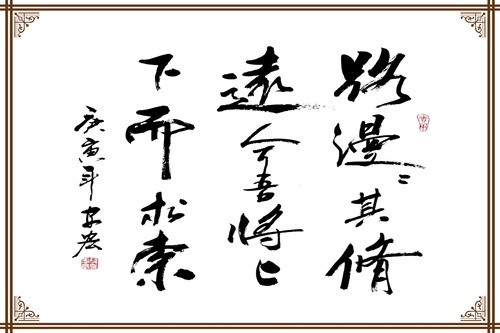 路漫〻其脩
遠兮吾將上
下而求索
庚寅年